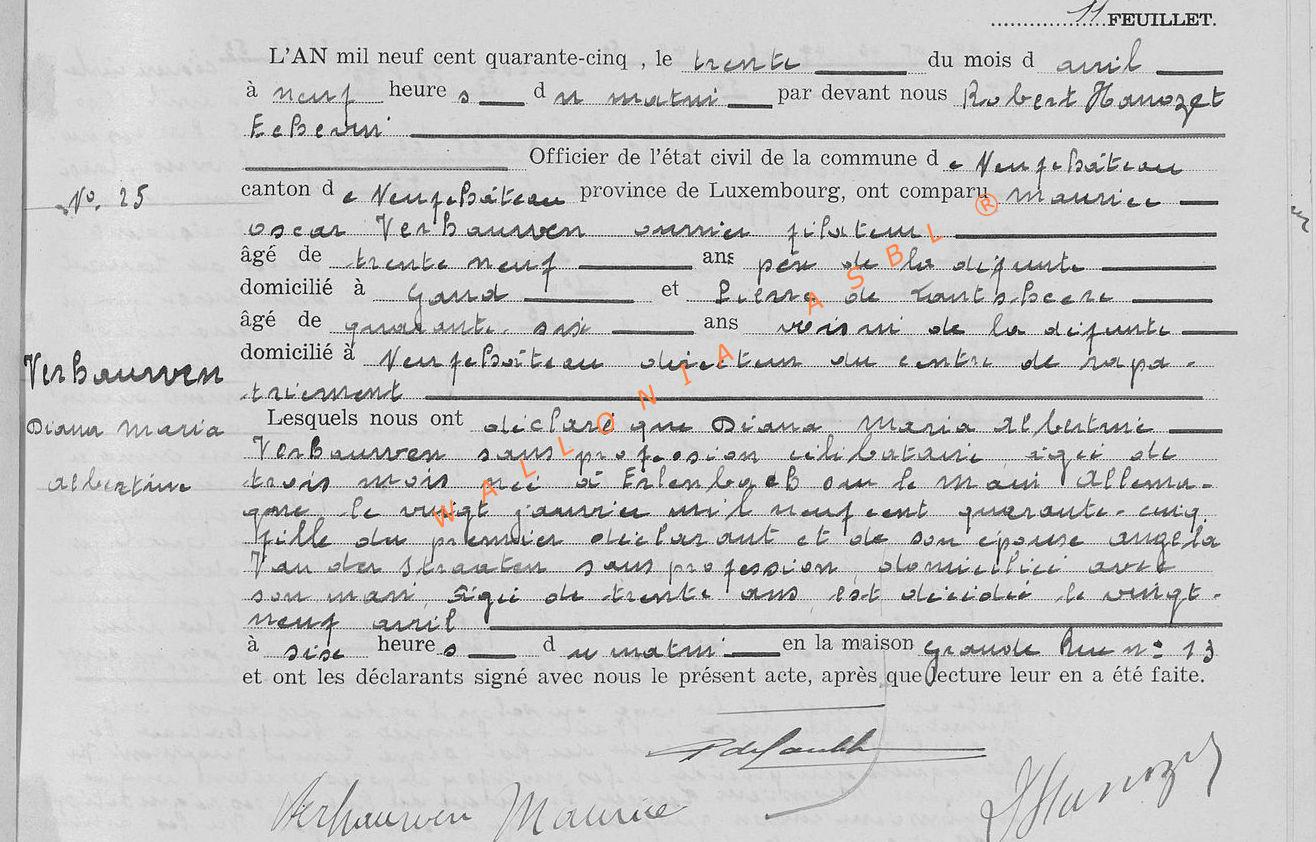 11 FEUILLET.
L'AN mil neuf cent quarante-cinq , le trente du mois d avril
à neuf heure s d u matin par devant nous Robert Hanozet
Echevin
Officier de l'état civil de la commune d e Neufchâteau
No. 25
canton d e Neufchâteau province de Luxembourg, ont comparu Maurice
Oscar Verhauwen ouvrier filateur
âgé de trente neuf ans père de la défunte
domicilié à Gand et Pierre de
âgé de quarante-six ans voisin de la défunte
domicilié à Neufchâteau directeur du centre de rapa-
triement
Verhauwen
Diana Maria
Albertine
Lesquels nous ont déclaré que Diana Maria Albertine
Verhauwen sans profession célibataire, âgée de
trois mois née à Erlenbach sur le Main Allema-
gne, le vingt janvier mil neuf cent quarante-cinq,
fille du premier déclarant et de son épouse Angela
Van der Straaten sans profession, domiciliée avec
son mari, âgée de trente ans, est décédée le vingt-
neuf avril
à six heure s d u matin en la maison Grande Rue n° 13
et ont les déclarants signé avec nous le présent acte, après que lecture leur en a été faite.
Verhauwen Maurice
Hanozet
WALLONIA ASBL ®